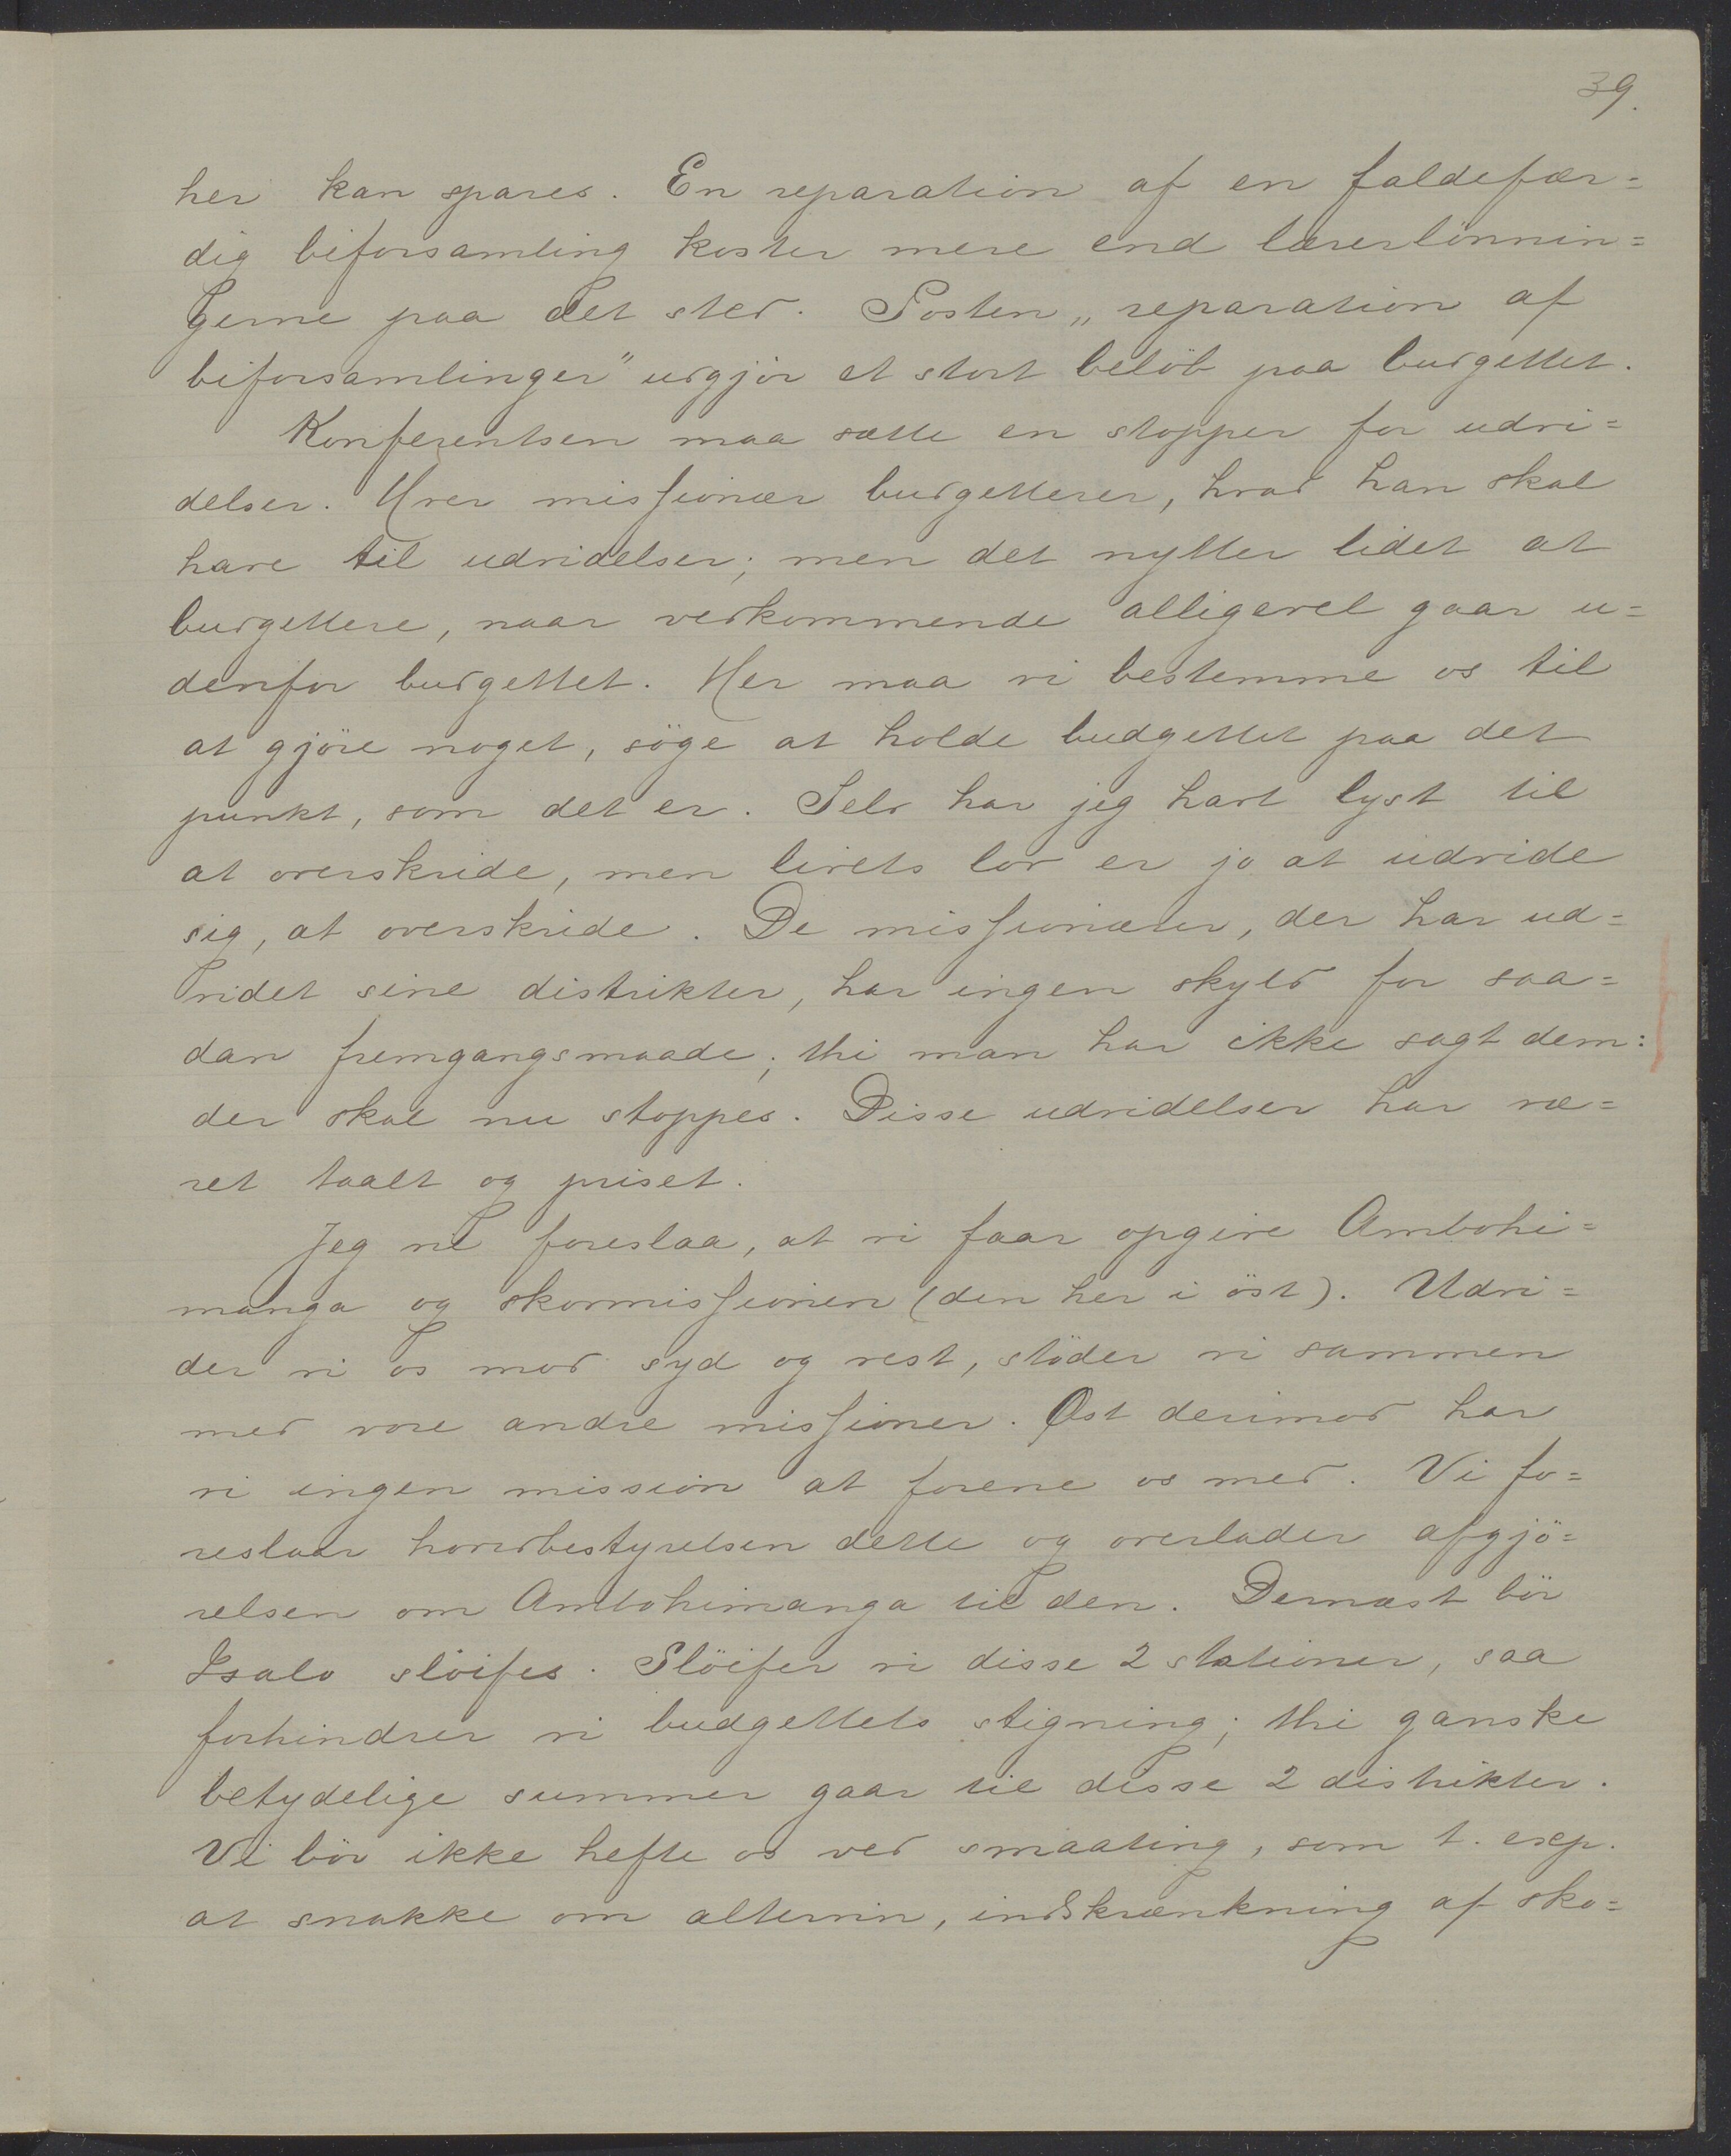 39.
her kan spares. En reparation af en faldefær=
dig biforsamling koster mere end lærerlönnin=
gerne paa det sted. Posten „reparation af
biforsamlinger” udgjör et stort belöb paa budgettet.
Konferentsen maa sætte en stopper for udvi=
delser. Hver missionær budgetterer, hvad han skal
have til udvidelser; men det nytter lidet at
budgettere, naar vedkommende alligevel gaar u=
denfor budgettet. Her maa vi bestemme os til
at gjöre noget, söge at holde budgettet paa det
punkt, som det er. Selv har jeg havt lyst til
at overskride, men livets lov er jo at udvide
sig, at overskride. De missionærer, der har ud=
videt sine distrikter, har ingen skyld for saa=
dan fremgangsmaade; thi man har ikke sagt dem:
der skal nu stoppes. Disse udvidelser har væ=
ret taalt og priset.
Jeg vil foreslaa, at vi faar opgive Ambohi=
manga og skovmissionen (den her i öst). Udvi=
der vi os mod syd og vest, stöder vi sammen
med vore andre missioner. Øst derimod har
vi ingen mission at forene os med. Vi fo=
reslaar hovedbestyrelsen dette og overlader afgjö=
relsen om Ambohimanga til den. Dernæst bör
Isalo slöifes. Slöifer vi disse 2 stationer, saa
forhindrer vi budgettets stigning; thi ganske
betydelige summer gaar til disse 2 distrikter.
Vi bör ikke hefte os ved smaating, som t. exp.
at snakke om altervin, indskrænkning af sko=